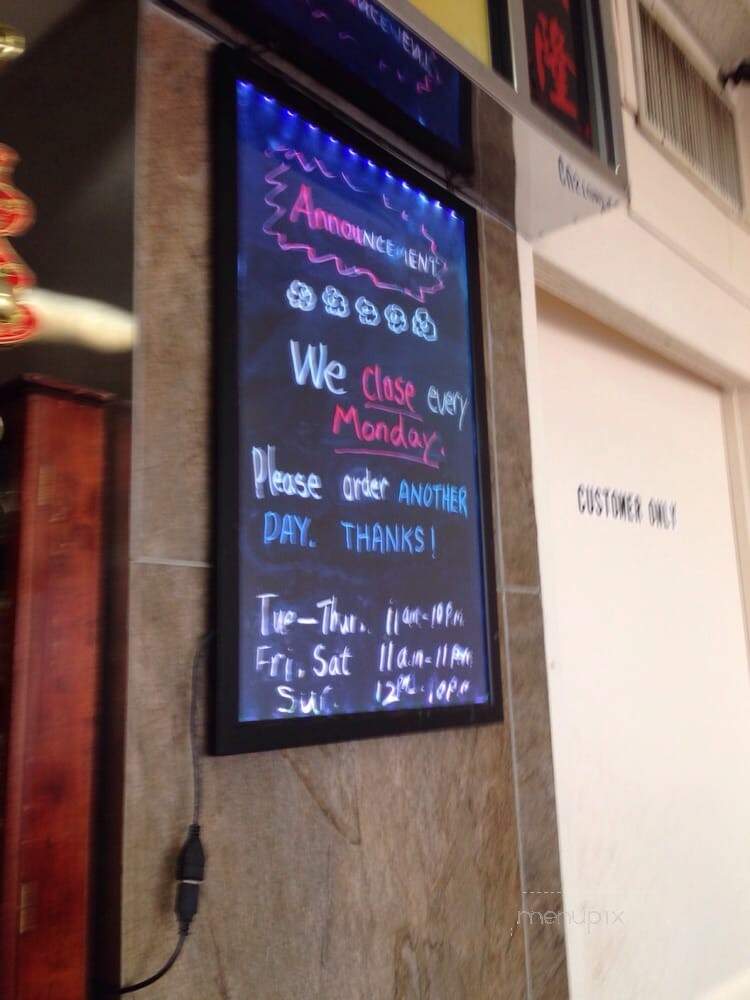 隆
ANNOUNCEMENT
We Close every
Monday.
Please order ANOTHER
DAY. THANKS!
Tue-Thur. 11am-10pm
Fri. Sat 11am-11pm
Sun. 12pm-10pm
CUSTOMER ONLY
menupix